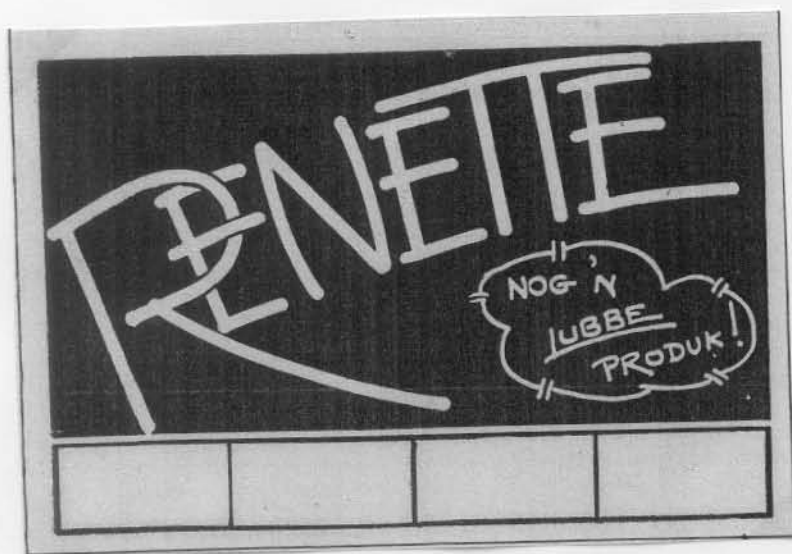 RENETTE
NOG 'N
LUBBE
PRODUK!